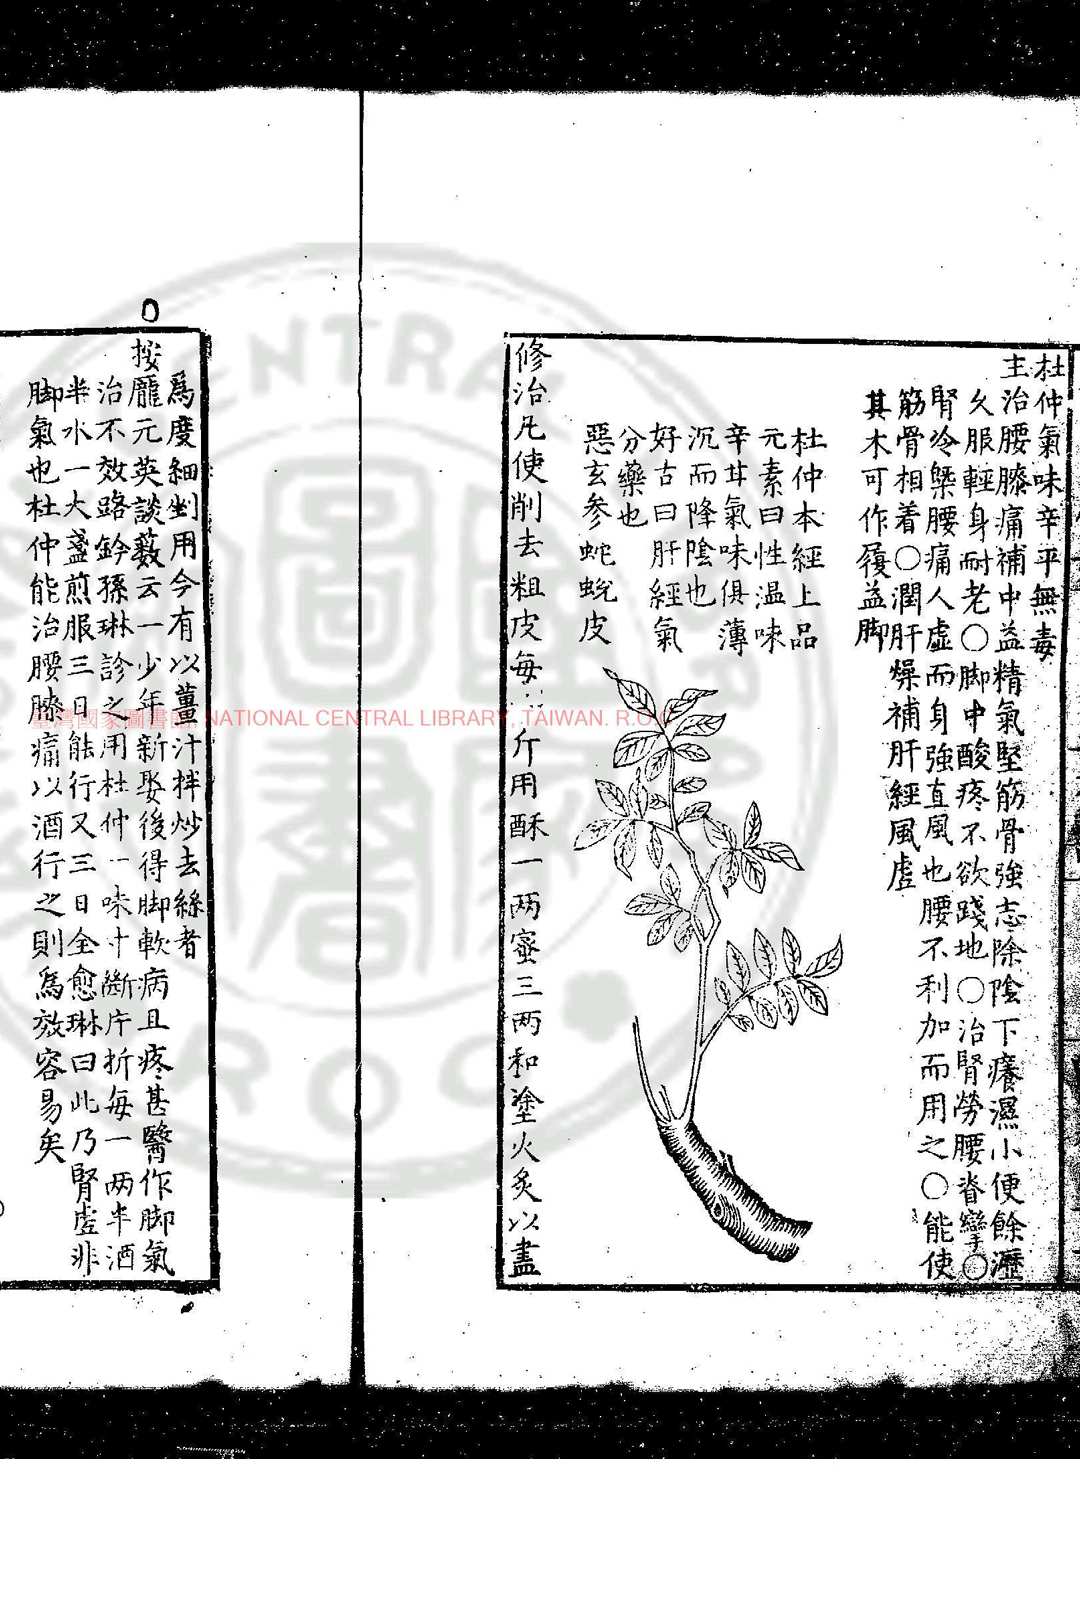 杜仲氣味辛平無毒
主治腰膝痛補中益精氣堅筋骨強志除陰下癢濕小便餘瀝
久服輕身耐老○脚中酸疼不欲踐地○治腎勞腰脊攣○
腎冷㿏腰痛人虛而身強直風也腰不利加而用之○能使
筋骨相着○潤肝燥補肝經風虛
其木可作履益脚
杜仲本經上品
元素曰性溫味
辛甘氣味俱薄
沉而降陰也
好古曰肝經氣
分藥也
惡玄參蛇蛻皮
修治凡使削去粗皮每 斤用酥一两蜜三两和塗火炙以盡
爲度細剉用今有以薑汁拌炒去絲者
按龐元英談藪云一少年新娶後得脚軟病且疼甚醫作脚氣
治不效路鈐孫琳診之用杜仲一味寸斷片折每一两半酒
半水一大盞煎服三日能行又三日全愈琳曰此乃腎虛非
脚氣也杜仲能治腰膝痛以酒行之則爲效容易矣
臺灣國家圖書館, NATIONAL CENTRAL LIBRARY, TAIWAN. R.O.C